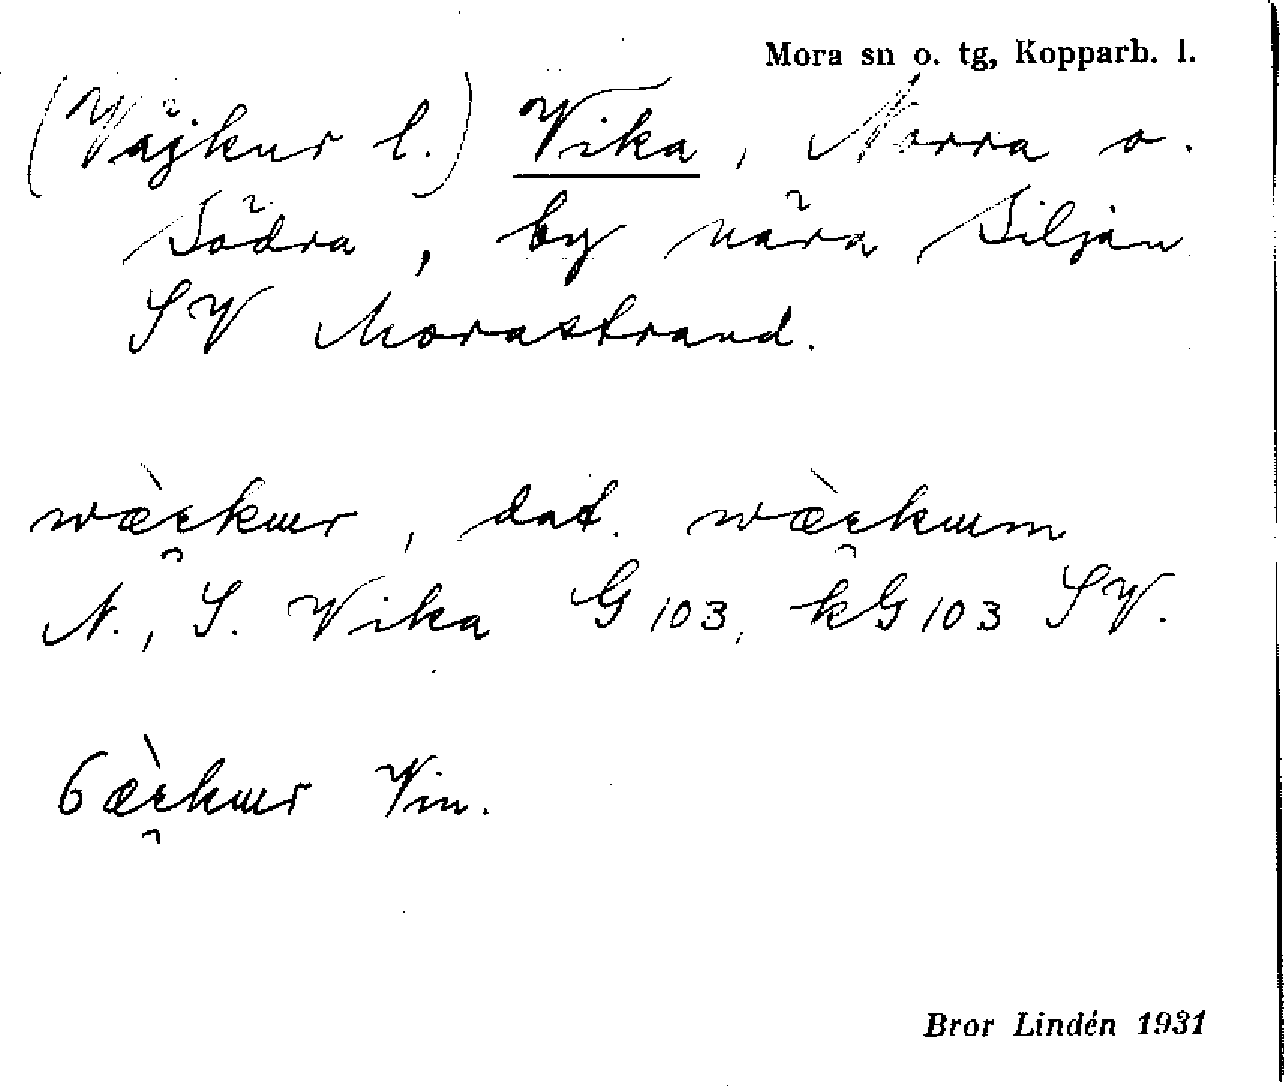 Mora sn o. tg, Kopparb. l.
(Väjkur l.) Vika, Norra o.
Södra, by nära Siljan
SV Morastrand.
wæ̀ɛ̯kɯr, dat. wæ̀ɛ̯kɯm
N., S. Vika G 103, kG 103 SV.
ϭæ̀ɛ̯kɯr Vin.
Bror Lindén 1931